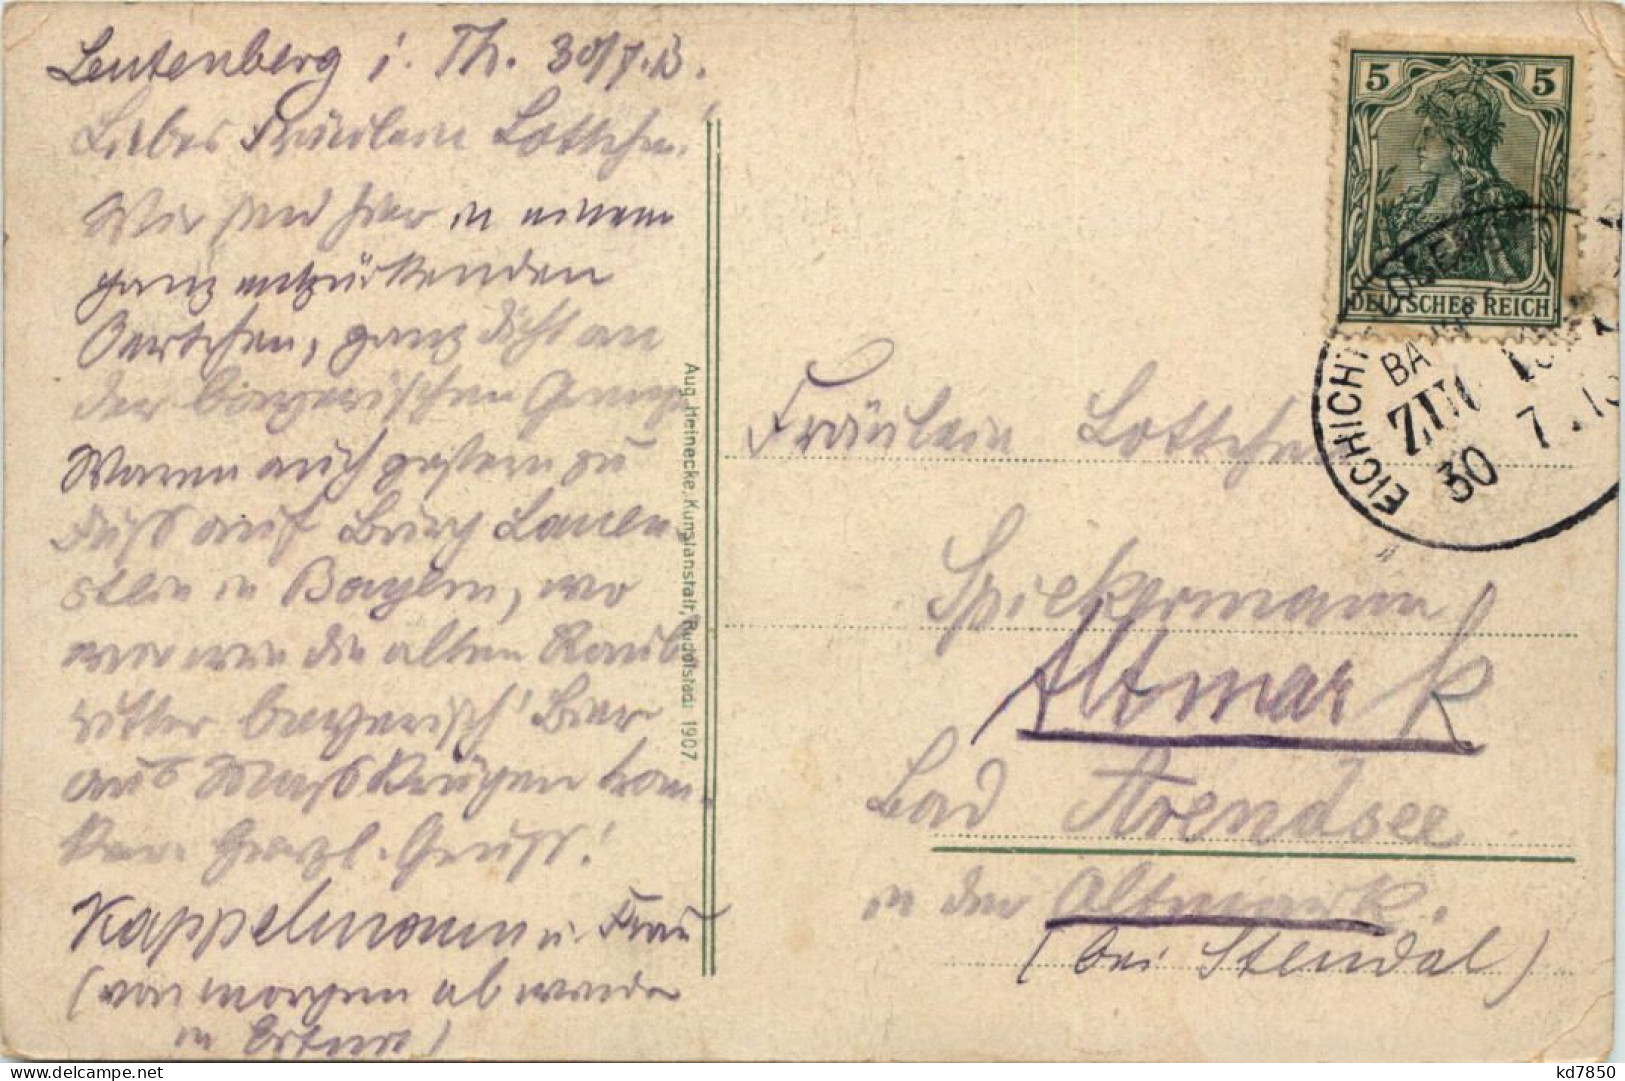 Leutenberg i. Th. 30/7.13.
Liebes Fräulein Lottchen!
Wir sind hier in einem
ganz entzückenden
Oertchen, ganz dicht an
der bayerischen Grenze
Waren auch gestern zu
Fuß auf Burg Lauen-
stein in Bayern, wo
wir wie die alten Raub-
ritter bayerisch' Bier
aus Maßkrügen tran-
ken. Herzl. Gruß!
Kappelmann u. Frau
(von morgen ab wieder
in Erfurt)
Aug. Heinecke, Kunstanstalt, Rudolstadt 1907
5 5
DEUTSCHES REICH
EICHICHT
BAHN
ZUG
30 7 13
Fräulein Lottchen
Spiekermann
Altmark
Bad Arendsee
in der Altmark.
(bei Stendal)
kd7850